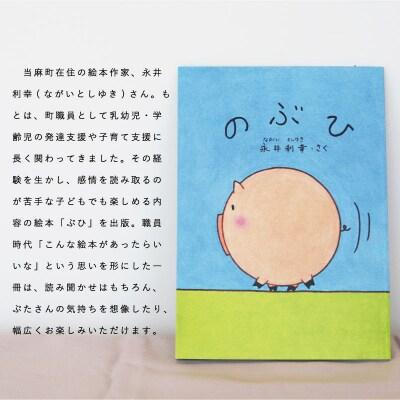 当麻町在住の絵本作家、永井
利幸(ながいとしゆき)さん。も
とは、町職員として乳幼児・学
齢児の発達支援や子育て支援に
長く関わってきました。その経
験を生かし、感情を読み取るの
が苦手な子どもでも楽しめる内
容の絵本「ぶひ」を出版。職員
時代「こんな絵本があったらい
いな」という思いを形にした一
冊は、読み聞かせはもちろん、
ぶたさんの気持ちを想像したり、
幅広くお楽しみいただけます。
のぶひ
ながい としゆき
永井利幸・さく